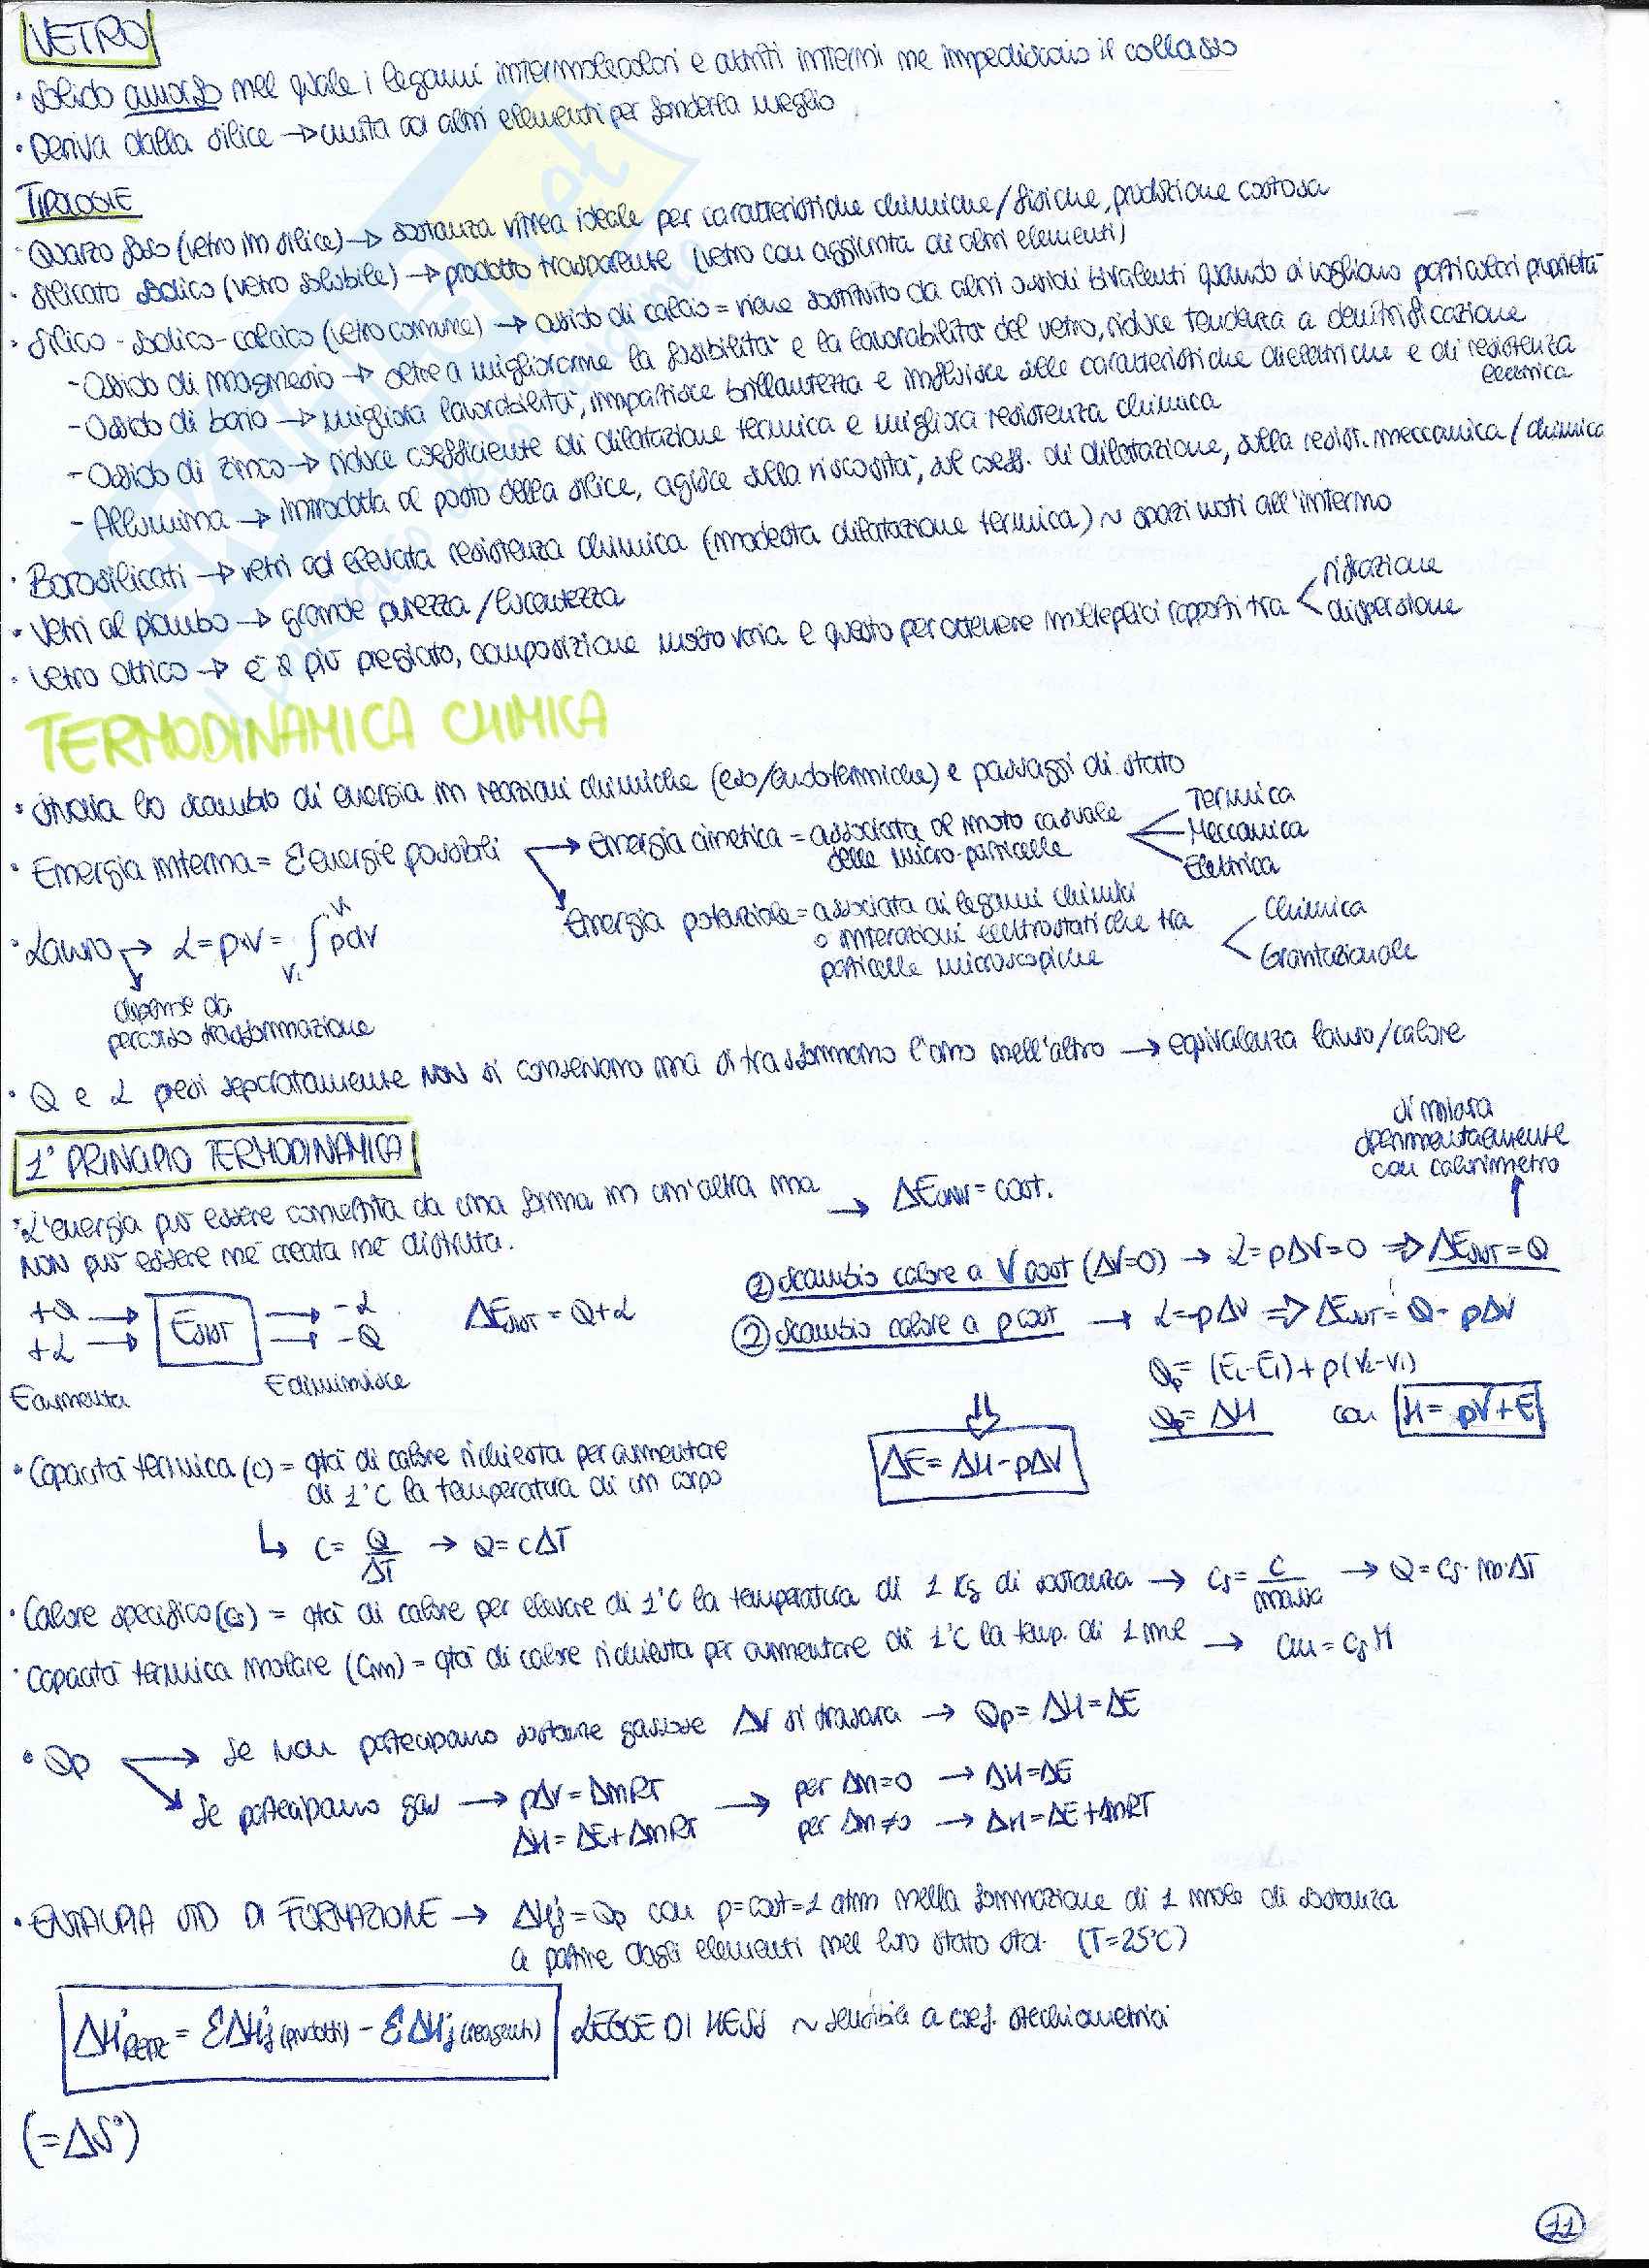 VETRO
• Solido amorfo nel quale i legami intermolecolari e attriti interni ne impediscono il collasso
• Deriva dalla silice → unita ad altri elementi per fonderla meglio
TIPOLOGIE
• Quarzo fuso (vetro in silice) → sostanza vitrea ideale per caratteristiche chimiche/fisiche, produzione costosa
• Silicato sodico (vetro solubile) → prodotto trasparente (vetro con aggiunta di altri elementi)
• Silico-sodico-calcico (vetro comune) → ossido di calcio = viene sostituito da altri ossidi bivalenti quando si vogliono particolari proprietà
- Ossido di magnesio → oltre a migliorarne la fusibilità e la lavorabilità del vetro, riduce tendenza a devitrificazione
- Ossido di bario → migliora lavorabilità, impartisce brillantezza e influisce sulle caratteristiche dielettriche e di resistenza elettrica
- Ossido di zinco → riduce coefficiente di dilatazione termica e migliora resistenza chimica
- Allumina → introdotta al posto della silice, agisce sulla viscosità, sul coeff. di dilatazione, sulla resist. meccanica/chimica
• Borosilicati → vetri ad elevata resistenza chimica (modesta dilatazione termica) ~ spazi vuoti all'interno
• Vetri al piombo → grande purezza/lucentezza
• Vetro ottico → è il più pregiato, composizione molto varia e questo per ottenere molteplici rapporti tra
rifrazione
dispersione
TERMODINAMICA CHIMICA
• Studia lo scambio di energia in reazioni chimiche (eso/endotermiche) e passaggi di stato
• Energia interna = Σ energie possibili → energia cinetica = associata al moto casuale
delle micro-particelle
Termica
Meccanica
Elettrica
Energia potenziale = associata ai legami chimici
o interazioni elettrostatiche tra
particelle microscopiche
Chimica
Gravitazionale
• Lavoro → L = p·V = ∫ pdV
V₁
dipende da
percorso trasformazione
• Q e L presi separatamente NON si conservano ma si trasformano l'uno nell'altro → equivalenza lavoro/calore
1° PRINCIPIO TERMODINAMICA
• L'energia può essere convertita da una forma in un'altra ma
NON può essere né creata né distrutta.
→ ΔE = cost.
si misura
sperimentalmente
con calorimetro
+Q → E → -L
+L → → -Q
E aumenta
E diminuisce
ΔE = Q+L
① Scambio calore a V cost (ΔV=0) → L=pΔV=0 ⇒ ΔE = Q
② Scambio calore a p cost → L=-pΔV ⇒ ΔE = Q - pΔV
Qp = (E₂-E₁)+p(V₂-V₁)
Qp = ΔH con H = pV+E
⇓
ΔE = ΔH - pΔV
• Capacità termica (C) = qtà di calore richiesta per aumentare
di 1°C la temperatura di un corpo
↳ C = Q/ΔT → Q = CΔT
• Calore specifico (Cs) = qtà di calore per elevare di 1°C la temperatura di 1 Kg di sostanza → Cs = C/massa → Q = Cs·m·ΔT
• Capacità termica molare (Cm) = qtà di calore richiesta per aumentare di 1°C la temp. di 1 mol → Cm = Cs M
• Qp → Se non partecipano sostanze gassose ΔV si trascura → Qp = ΔH = ΔE
Se partecipano gas → pΔV = ΔnRT → per Δn=0 → ΔH=ΔE
ΔH = ΔE+ΔnRT per Δn≠0 → ΔH = ΔE+ΔnRT
• ENTALPIA STD DI FORMAZIONE → ΔH°f = Qp con p=cost=1 atm nella formazione di 1 mole di sostanza
a partire dagli elementi nel loro stato std. (T=25°C)
ΔH° = ΣΔH°f (prodotti) - ΣΔH°f (reagenti) LEGGE DI HESS ~ sensibile a coef. stechiometrici
(=ΔS°)
11